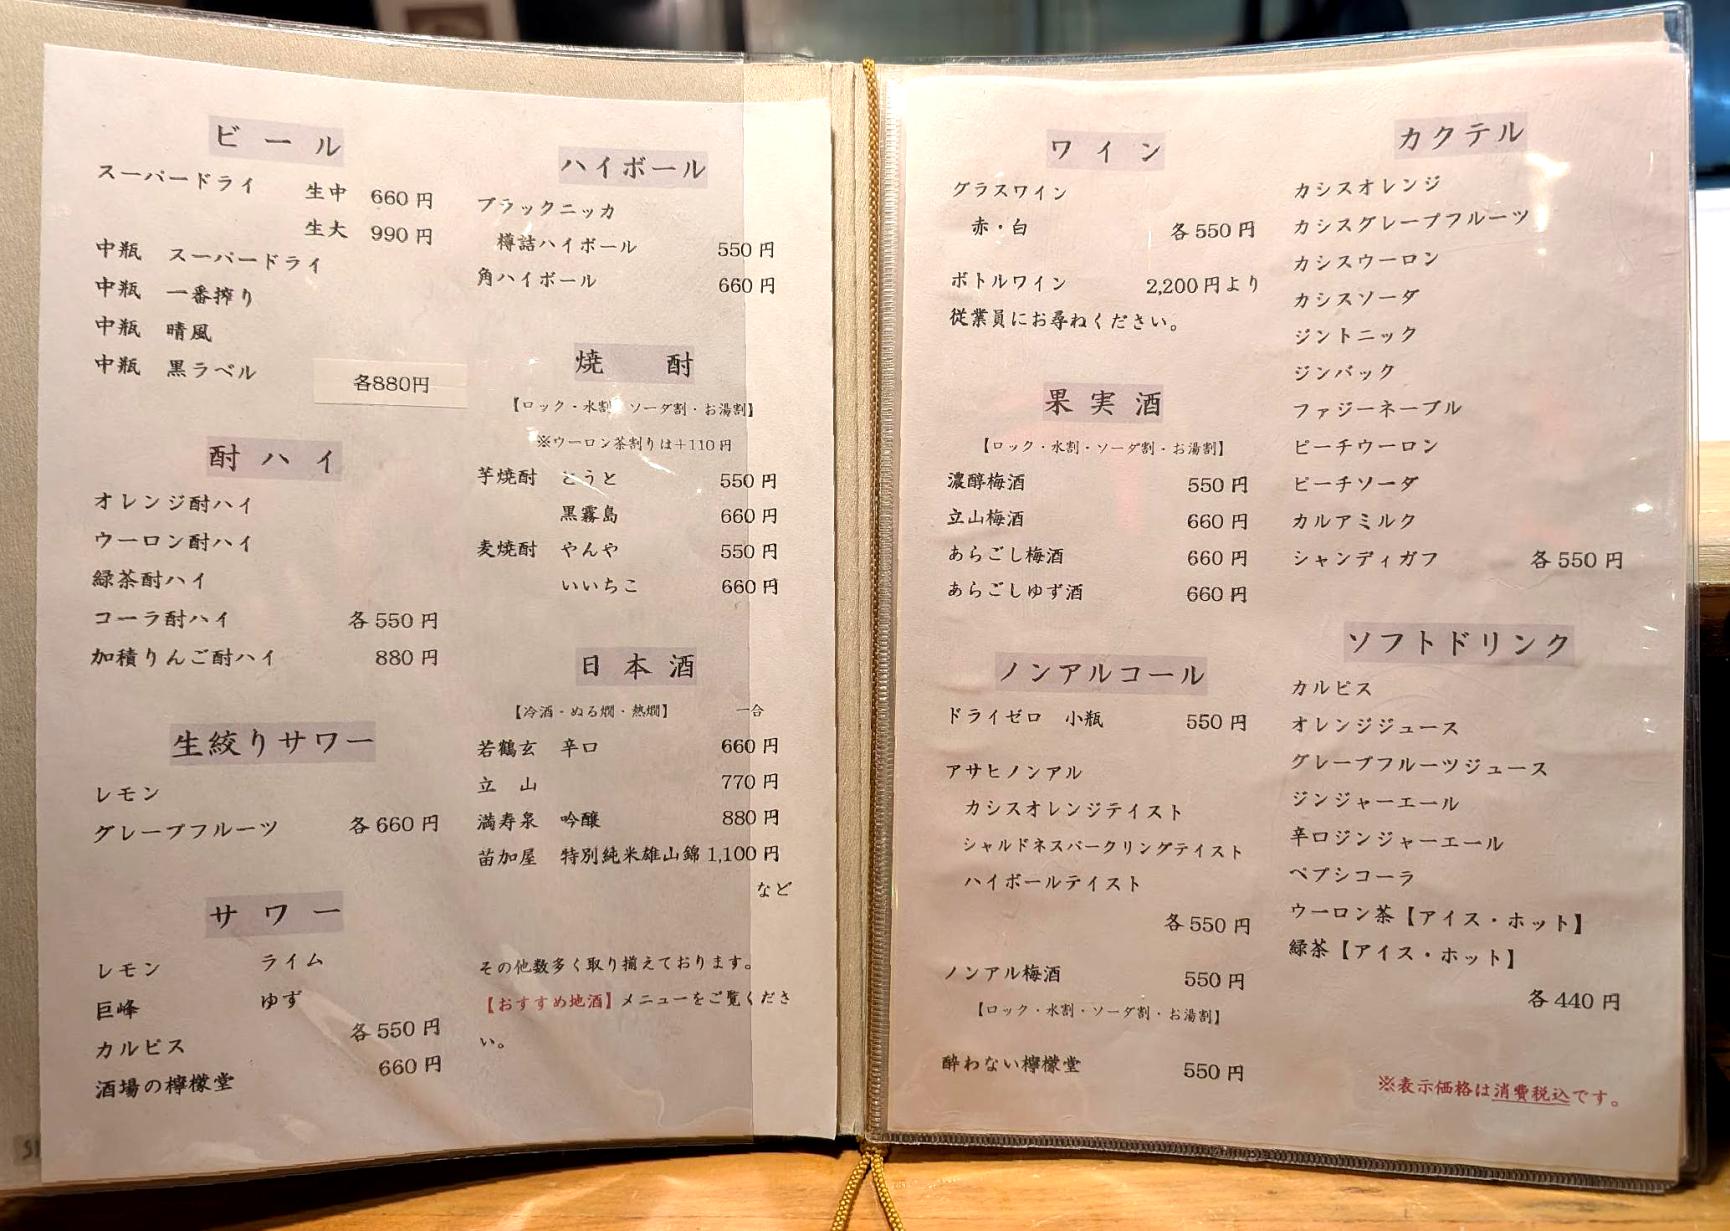 ビール
スーパードライ 生中 660円
生大 990円
中瓶 スーパードライ
中瓶 一番搾り
中瓶 晴風
中瓶 黒ラベル 各880円
酎ハイ
オレンジ酎ハイ
ウーロン酎ハイ
緑茶酎ハイ
コーラ酎ハイ 各550円
加積りんご酎ハイ 880円
生絞りサワー
レモン
グレープフルーツ 各660円
サワー
レモン ライム
巨峰 ゆず
カルピス 各550円
酒場の檸檬堂 660円
ハイボール
ブラックニッカ
樽詰ハイボール 550円
角ハイボール 660円
焼酎
【ロック・水割・ソーダ割・お湯割】
※ウーロン茶割りは+110円
芋焼酎 とうと 550円
黒霧島 660円
麦焼酎 やんや 550円
いいちこ 660円
日本酒
【冷酒・ぬる燗・熱燗】 一合
若鶴玄 辛口 660円
立山 770円
満寿泉 吟醸 880円
苗加屋 特別純米雄山錦 1,100円
など
その他数多く取り揃えております。
【おすすめ地酒】メニューをご覧くださ
い。
ワイン
グラスワイン
赤・白 各550円
ボトルワイン 2,200円より
従業員にお尋ねください。
果実酒
【ロック・水割・ソーダ割・お湯割】
濃醇梅酒 550円
立山梅酒 660円
あらごし梅酒 660円
あらごしゆず酒 660円
ノンアルコール
ドライゼロ 小瓶 550円
アサヒノンアル
カシスオレンジテイスト
シャルドネスパークリングテイスト
ハイボールテイスト
各550円
ノンアル梅酒 550円
【ロック・水割・ソーダ割・お湯割】
酔わない檸檬堂 550円
カクテル
カシスオレンジ
カシスグレープフルーツ
カシスウーロン
カシスソーダ
ジントニック
ジンバック
ファジーネーブル
ピーチウーロン
ピーチソーダ
カルアミルク
シャンディガフ 各550円
ソフトドリンク
カルピス
オレンジジュース
グレープフルーツジュース
ジンジャーエール
辛口ジンジャーエール
ペプシコーラ
ウーロン茶【アイス・ホット】
緑茶【アイス・ホット】
各440円
※表示価格は消費税込です。